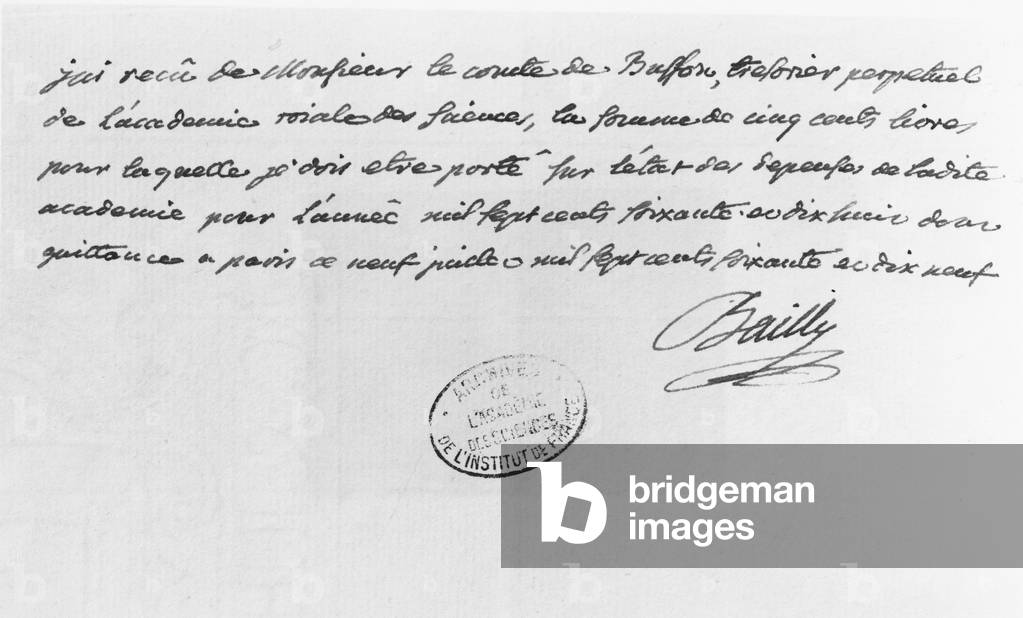 jai recu de Monsieur le comte de Buffon, tresorier perpetuel
de l'academie roiale des sciences, la somme de cinq cents livres
pour laquelle je dois etre porté sur l'état des depenses de ladite
academie pour l'année mil sept cents soixante et dix huit dont
quittance a paris ce neuf juillet mil sept cents soixante et dix neuf
Bailly
ARCHIVES
DE
L'ACADÉMIE
DES SCIENCES
DE L'INSTITUT DE FRANCE
b bridgeman
images